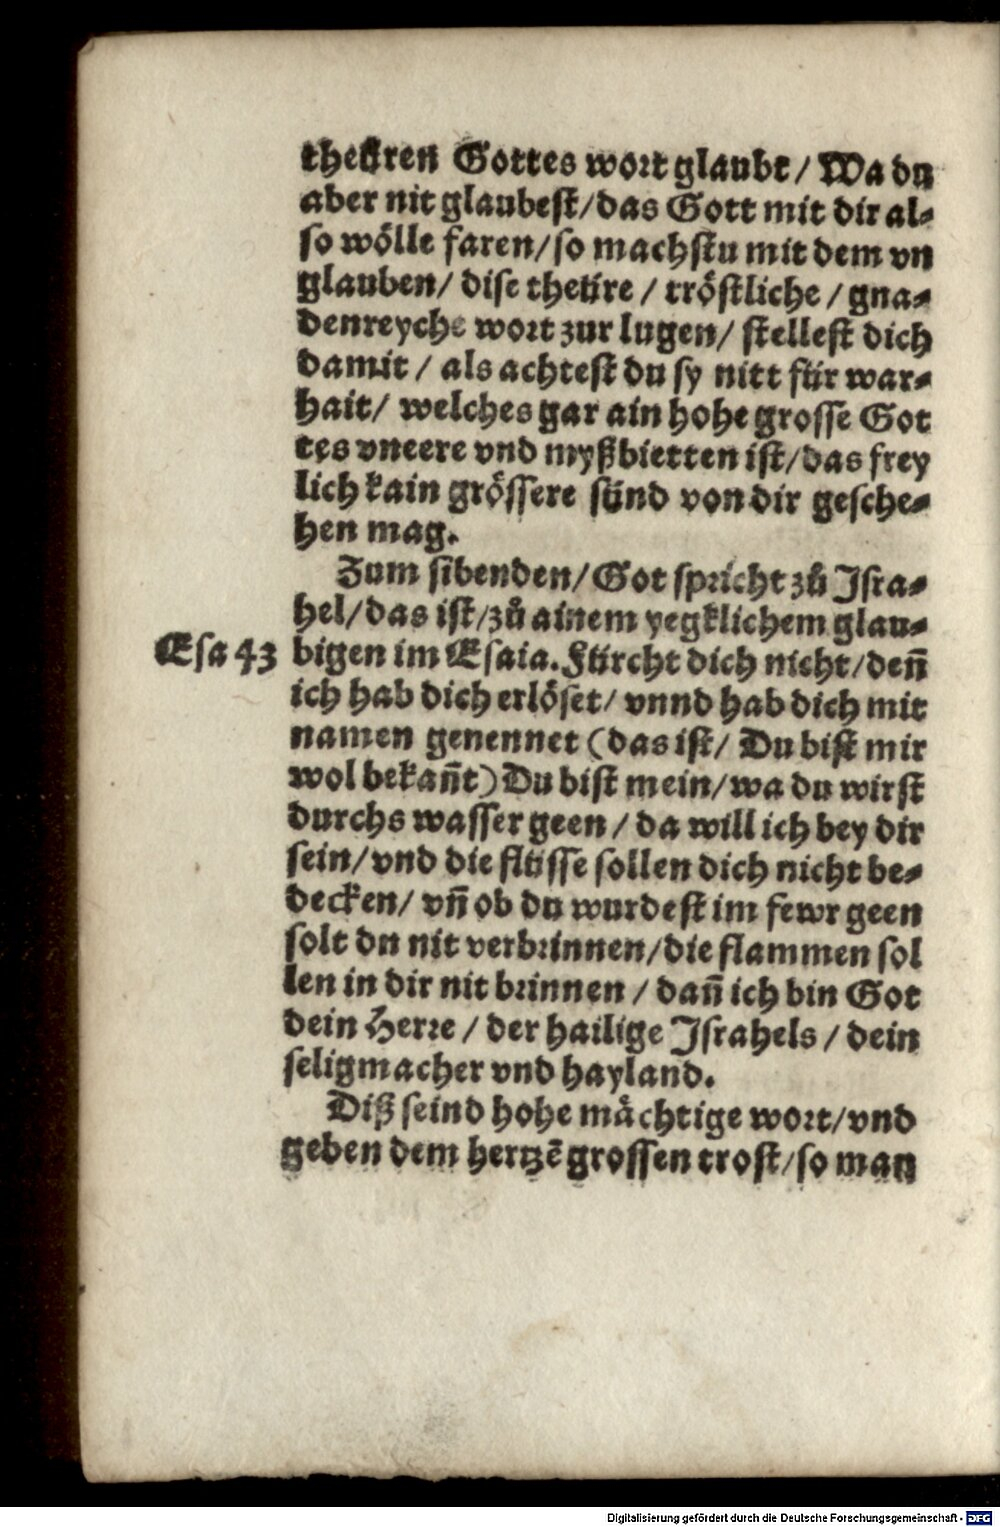 theüren Gottes wort glaubt / Wa du
aber nit glaubest/das Gott mit dir al⸗
so wölle faren/so machstu mit dem vn
glauben/ dise theüre / tröstliche / gna⸗
denreyche wort zur lugen/ stellest dich
damit / als achtest du sy nitt für war⸗
hait/ welches gar ain hohe grosse Got
tes vneere vnd myßbietten ist/das frey
lich kain grössere sünd von dir gesche⸗
hen mag.
Zum sibenden/Got spricht zů Isra⸗
hel/das ist/zů ainem yegklichem glau⸗
Esa 43 bigen im Esaia. Fürcht dich nicht/deñ
ich hab dich erlöset/ vnnd hab dich mit
namen genennet (das ist/ Du bist mir
wol bekañt) Du bist mein/wa du wirst
durchs wasser geen / da will ich bey dir
sein/vnd die flüsse sollen dich nicht be⸗
decken/ vñ ob du wurdest im fewr geen
solt du nit verbrinnen/die flammen sol
len in dir nit brinnen / dañ ich bin Got
dein Herre / der hailige Israhels / dein
seligmacher vnd hayland.
Diß seind hohe mächtige wort/vnd
geben dem hertzē grossen trost/so man
Digitalisierung gefördert durch die Deutsche Forschungsgemeinschaft - DFG